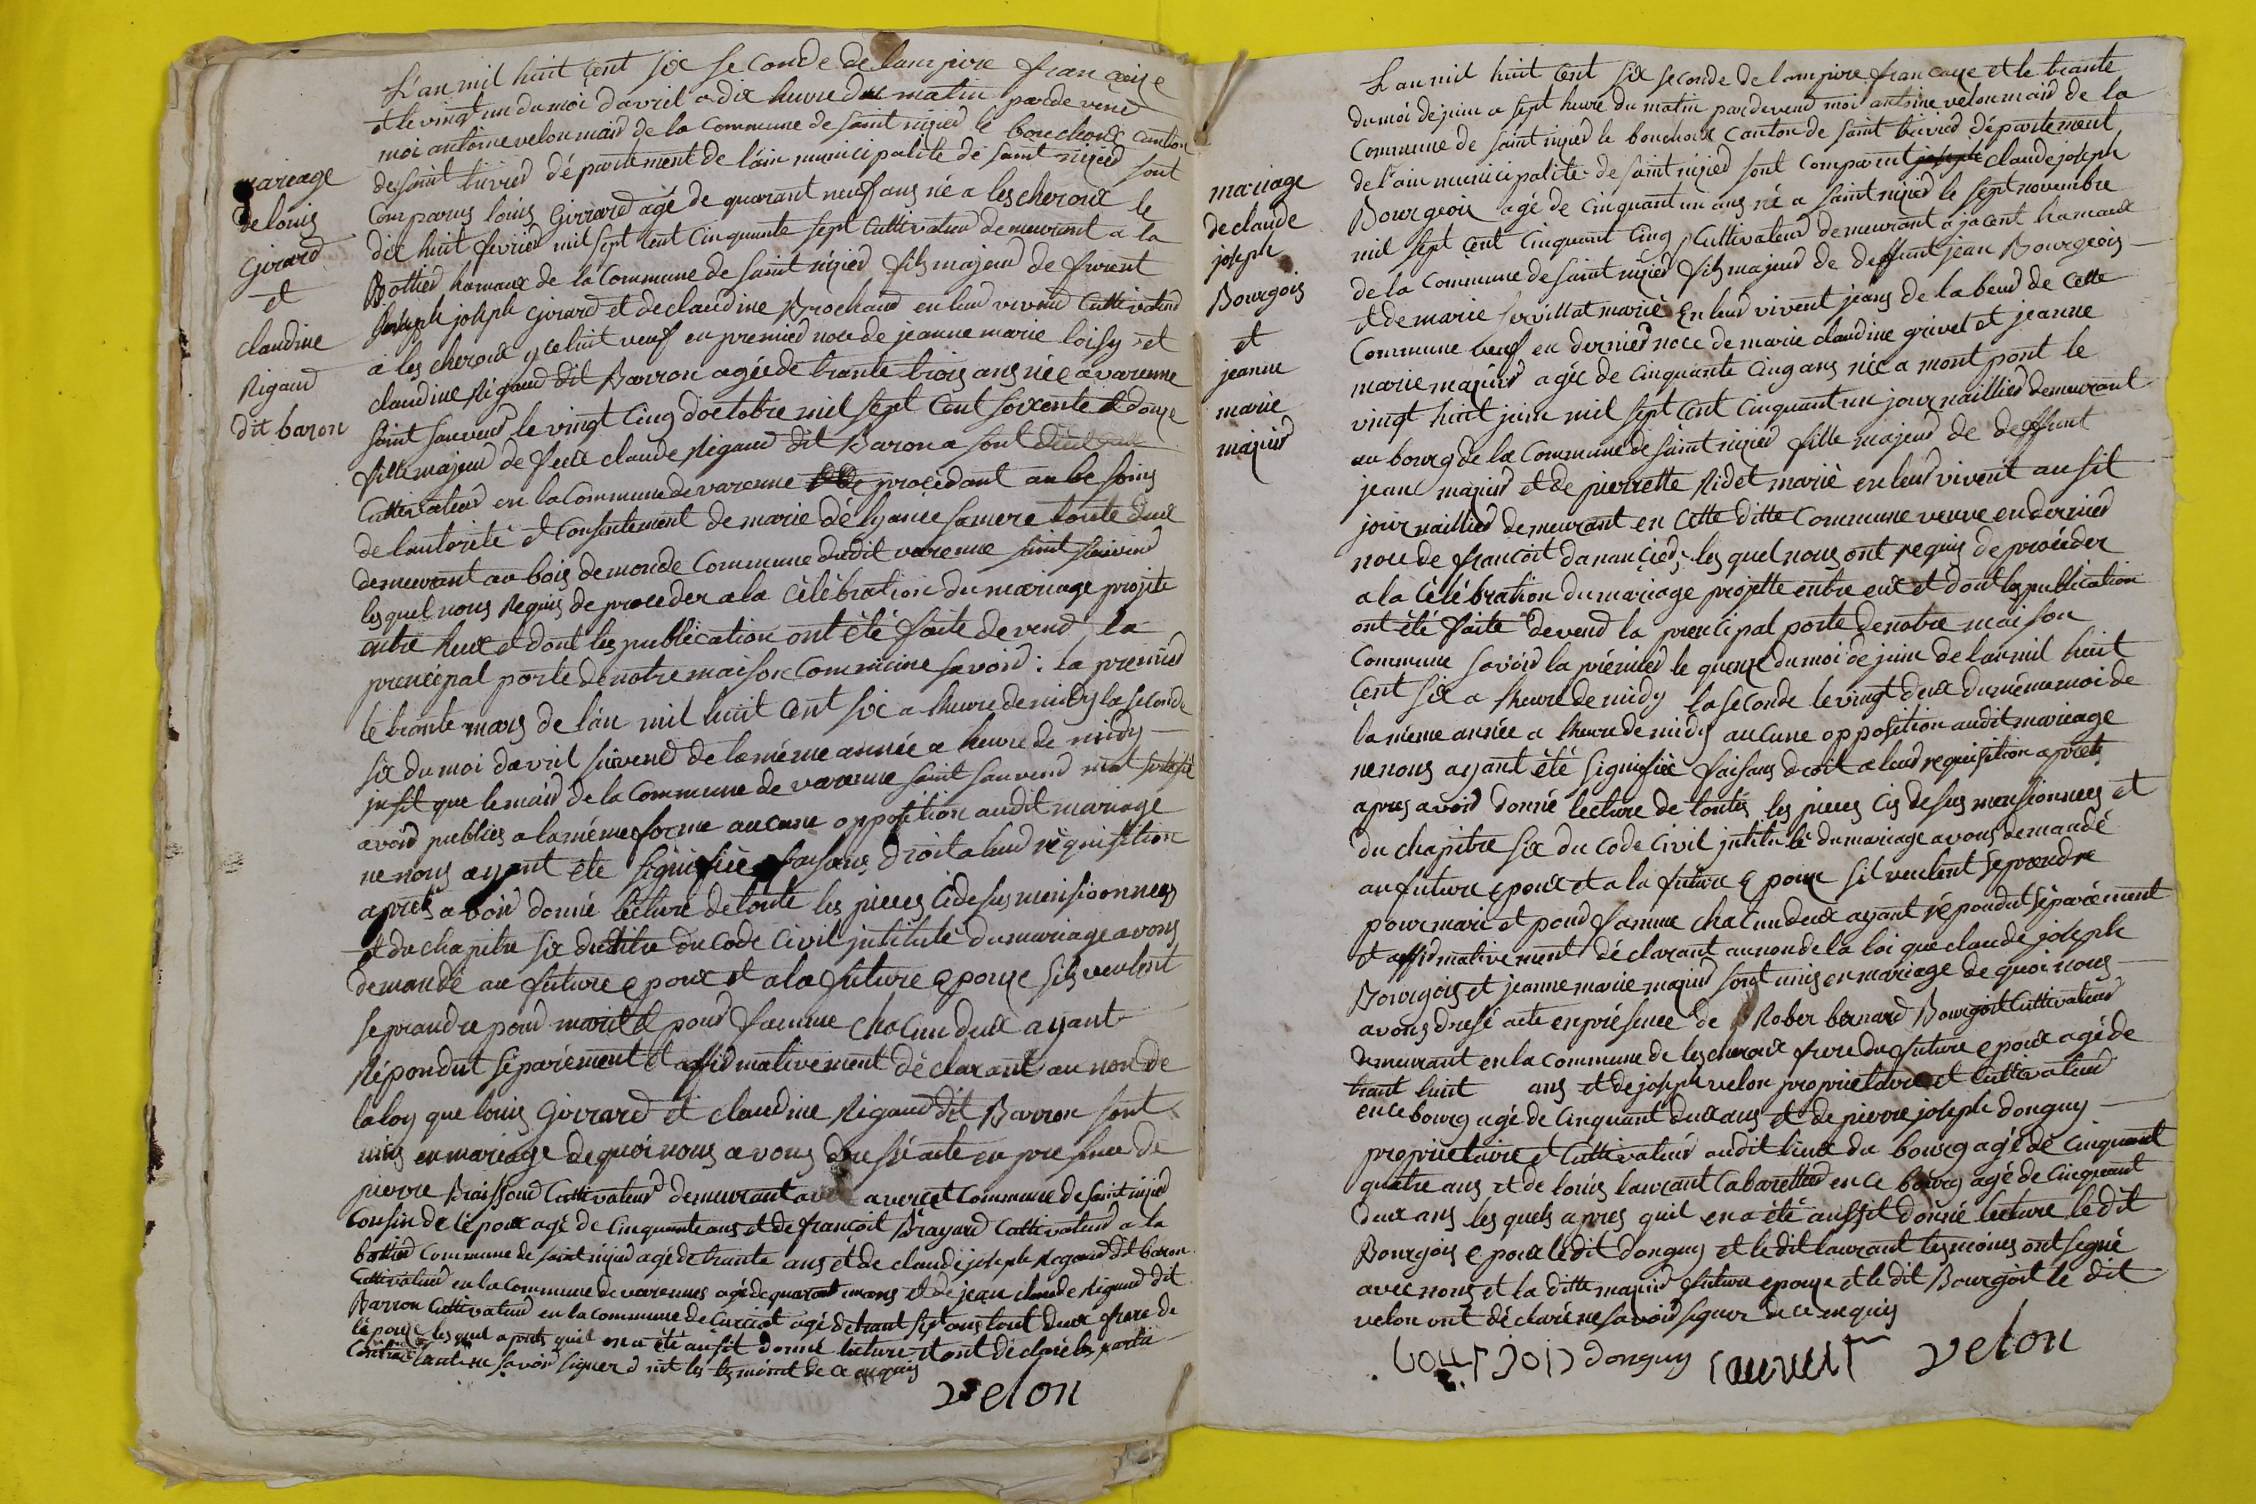 mariage
de louis
Girard
et
claudine
Rigaud
dit baron
L'an mil huit cent six seconde de lampire francaise
et le vingt un du moi davril a dix heure du matin pardevend
moi antoine velon maird de la Commune de saint nizied le bouchoux canton
de saint trivied département de l'ain municipalité de saint nizied sont
Comparus louis Girrard agé de quarant neuf ans né a les cheroux le
dix huit fevried mil sept cent cinquante sept Cultivateud demeurant a la
Bottied hamaux de la Commune de saint nizied fils majeud de furent
joseph Girard et de claudine Brochand en leud vivend Cultivateud
a les cheroux y celuit veuf en premied noce de jeanne marie loisy et
claudine Rigaud dit Barron agée de trante trois ans née a varenne
saint sauveud le vingt Cinq doctobre mil sept Cent soixente et douze
fille majeud de feux claude Rigaud dit Baron a sont
Cultivateud en la Commune de varenne procédant au be soins
de lautorité et Consentement de marie déliance sa mere toute deux
demeurant au bois de monde Commune dudit varenne saint sauveud
les quel nous Requis de proceder a la célébration du mariage projete
entre heux et dont les publication ont été faite devend la
principal porte de notre maison Commune savoir : la premied
le trante mars de l'an mil huit Cent six a lheure de midy la seconde
six du moi davril suivend de la méme année a heure de midy
insit que le maird de la Commune de varenne saint sauveud
avoir publies a la méme forme aucune opposition audit mariage
ne nous ayent été signifiée faisans droit a leud réquisition
aprés avoir donné lecture de toute les pieces cidesus mensionnees
et du chapitre six dutitre du Code Civil jntitulé du mariage avons
demandé au future epoux et a la future epouze sils veulent
se prandre pour mari et pour famme chacun deux ayant
Répondut séparément et affirmativement déclarant au non de
la loy que louis Girrard et claudine Rigaud dit Barron sont
unis en mariage de quoi nous avons dressé acte en presence de
pierre Cultivateud demeurant averiet Commune de saint nizied
Cousin de lépoux agé de Cinquante ans et de francoit Brayard Cultivateud a la
bottied Commune de saint nizied agé de trante ans et de claude joseph Rigaud dit baron
Cultivateud en la Commune de varennes agé de quarant ans et de jean claude Rigaud dit
Barron Cultivateud en la Commune de Curciat agé de trant sept ans tout deux frere de
lépouze les quel aprés quil en a été aussit donné lecture et ont déclaré les partie
Contractante ne savoir signer d nit les temoint de ce enquis
velon
mariage
de claude
joseph
Bourgois
et
jeanne
marie
mazuir
L'an mil huit Cent six seconde de lampire francaise et le trante
du moi de juin a sept heure du matin pardevend moi antoine velon maird de la
Commune de saint nizied le bouchoux Canton de saint trivied département
de l'ain municipalité de saint nizied sont comparut joseph claude joseph
Bourgeois agé de cinquant un ans né a saint nizied le sept novembre
mil sept Cent cinquant Cinq, Cultivateud demeurant a jacent hamaux
de la Commune de saint nizied fils majeud de deffunt jean Bourgeois
et de marie servillat marié En leud vivent jeans de labeud de Cette
Commune veuf en dernied noce de marie claudine grivel et jeanne
marie mazuir agée de Cinquante Cinq ans née a mont pont le
vingt huit juin mil sept Cent Cinquant un journaillied demeurant
au bourg de la Commune de saint nizied fille majeud de deffunt
jean mazuir et de pierrette Ridet marié en leud vivent ausit
journaillied demeurant en Cette ditte Commune veuve en dernied
noce de francoit dananCied, les quel nous ont requis de procéder
a la célébration du mariage projette entre eux et dont les publication
ont été faite devend la principal porte de notre maison
Commune savoir la prémied le quinze du moi de juin de lan mil huit
Cent six a lheure de midy la seconde le vingt deux du méme moi de
la meme année a lheure de midy aucune opposition audit mariage
ne nous ayant été signifiée faisans droit a leud requisition aprets
apres avoir donné lecture de toutes les pieces cis desus mensionnees et
du chapitre six du Code Civil jntitulé du mariage avons demandé
au future epoux et a la future epouze sil veulent se prendre
pour mari et pour famme chacun deux ayant répondut séparément
et affirmativement déclarant au non de la loi que claude joseph
Bourgois et jeanne marie mazuir sont unis en mariage de quoi nous
avons dresé acte en présence de Rober bernard Bourgoit Cultivateud
demeurant en la Commune de les cheroux frere du future epoux agé de
trant huit ans et de joseph velon proprietaire et Cultivateud
en ce bourg agé de Cinquant deux ans et de pierre joseph donguy
proprietaire et Cultivateud audit lieux du bourg agé de cinquant
quatre ans et de louis laurant Cabarettied en ce bourg agé de Cinquant
deux ans les quels apres quil en a été aussit donné lecture le dit
Bourgois epoux le dit donguy et le dit laurant tesmoins ont segné
avec nous et la ditte mazuir future epouze et le dit Bourgoit le dit
velon ont déclaré ne savoir signer de ce enquis
bourjois donguy laurent velon